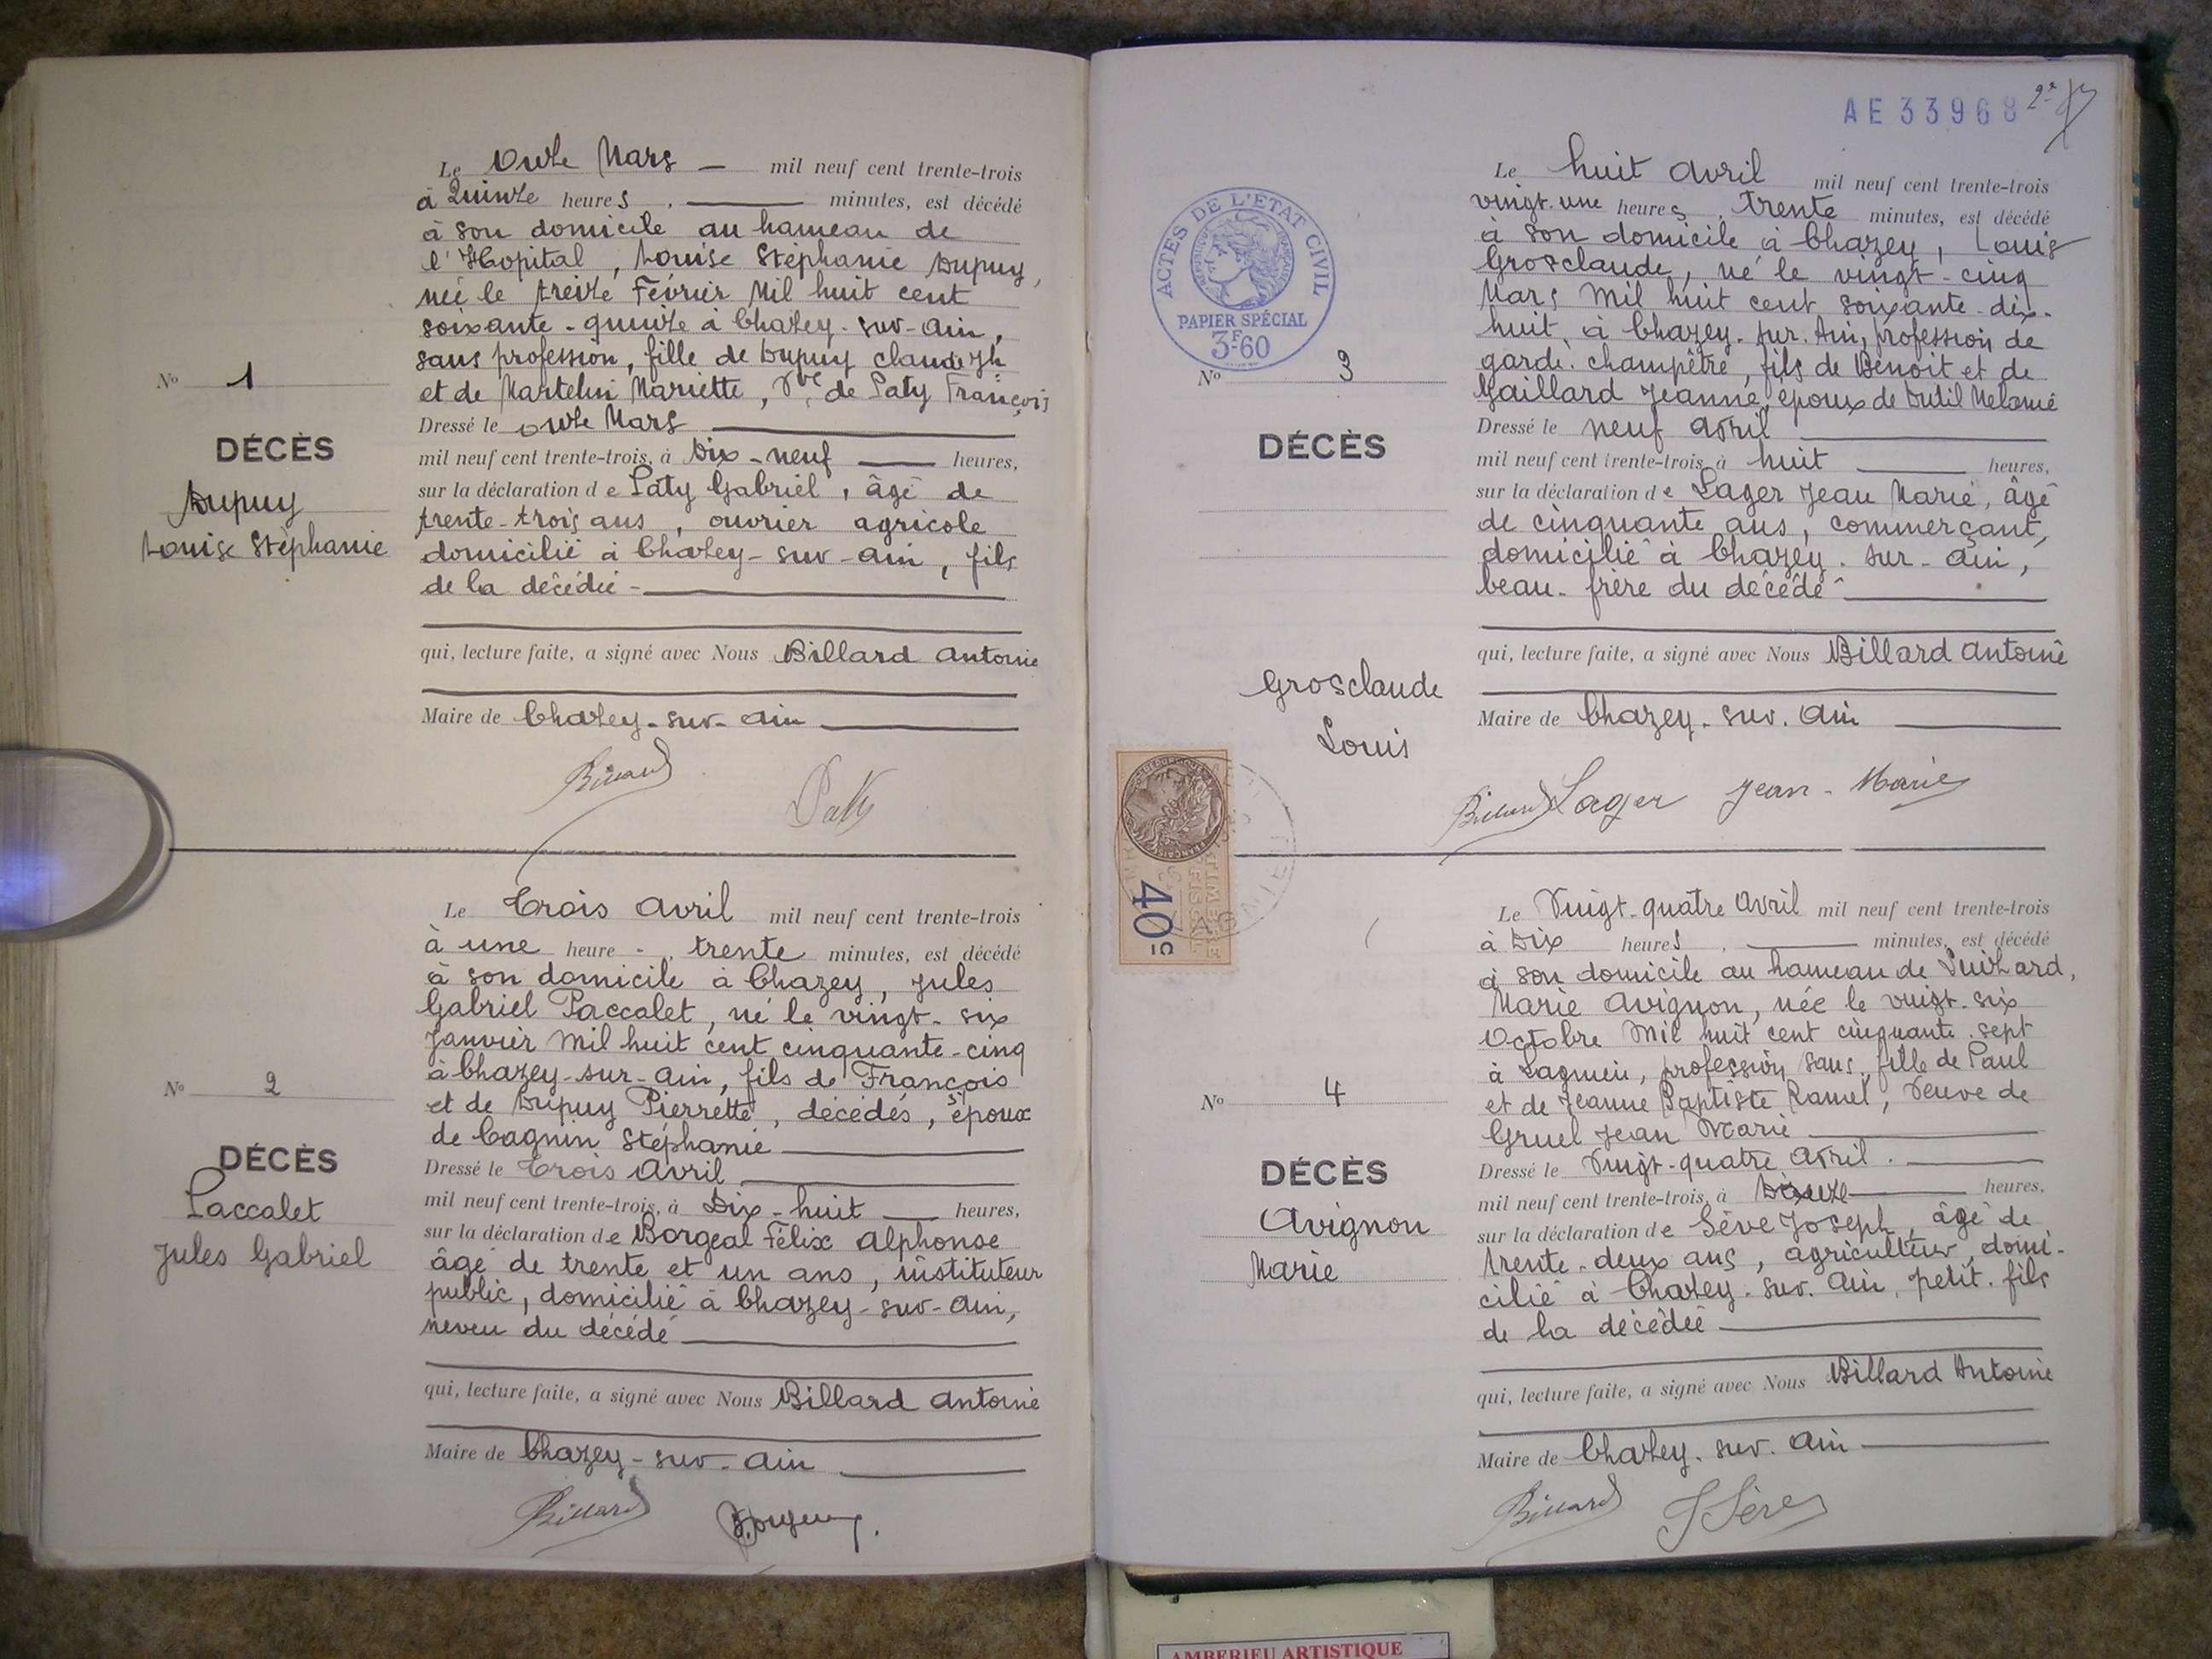 Le onze Mars mil neuf cent trente-trois
à Quinze heures, minutes, est décédé
à son domicile au hameau de
l'Hopital, Louise Stéphanie Dupuy,
née le treize Février Mil huit cent
soixante-quinze à Chazey-sur-Ain,
sans profession, fille de Dupuy Claude Jh
et de Martelin Mariette, Vve de Paty François
Dressé le onze Mars
mil neuf cent trente-trois, à Dix-neuf heures,
sur la déclaration de Paty Gabriel, âgé de
trente-trois ans, ouvrier agricole
domicilié à Chazey-sur-Ain, fils
de la décédée
qui, lecture faite, a signé avec Nous Billard Antoine
Maire de Chazey-sur-Ain
Billard Paty
No 1
DÉCÈS
Dupuy
Louise Stéphanie
Le Trois Avril mil neuf cent trente-trois
à une heure, trente minutes, est décédé
à son domicile à Chazey, Jules
Gabriel Paccalet, né le vingt-six
Janvier Mil huit cent cinquante-cinq
à Chazey-sur-Ain, fils de François
et de Dupuy Pierrette, décédés, époux
de Cagnin Stéphanie
Dressé le Trois Avril
mil neuf cent trente-trois, à Dix-huit heures,
sur la déclaration de Borgeal Félix Alphonse
âgé de trente et un ans, instituteur
public, domicilié à Chazey-sur-Ain,
neveu du décédé
qui, lecture faite, a signé avec Nous Billard Antoine
Maire de Chazey-sur-Ain
Billard
No 2
DÉCÈS
Paccalet
Jules Gabriel
AE 33968
ACTES DE L'ETAT CIVIL
PAPIER SPÉCIAL
3F60
Le huit Avril mil neuf cent trente-trois
vingt-une heures, trente minutes, est décédé
à son domicile à Chazey, Louis
Grosclaude, né le vingt-cinq
Mars Mil huit cent soixante-dix-
huit à Chazey-sur-Ain, profession de
garde-champêtre, fils de Benoit et de
Gaillard Jeanne, époux de Dutil Melanie
Dressé le neuf Avril
mil neuf cent trente-trois, à huit heures,
sur la déclaration de Lager Jean Marie, âgé
de cinquante ans, commerçant,
domicilié à Chazey-sur-Ain,
beau-frère du décédé
qui, lecture faite, a signé avec Nous Billard Antoine
Maire de Chazey-sur-Ain
Billard Lager Jean-Marie
No 3
DÉCÈS
Grosclaude
Louis
40c
TIMBRE
FISCAL
Le Vingt-quatre Avril mil neuf cent trente-trois
à Dix heures, minutes, est décédé
à son domicile au hameau de Luizard,
Marie Avignon, née le vingt-six
Octobre Mil huit cent cinquante-sept
à Lagnieu, profession sans, fille de Paul
et de Jeanne Baptiste Ramel, Veuve de
Gruel Jean Marie
Dressé le Vingt-quatre Avril
mil neuf cent trente-trois, à heures,
sur la déclaration de Sève Joseph, âgé de
trente-deux ans, agriculteur, domi-
cilié à Chazey-sur-Ain, petit-fils
de la décédée
qui, lecture faite, a signé avec Nous Billard Antoine
Maire de Chazey-sur-Ain
Billard J Sève
No 4
DÉCÈS
Avignon
Marie
AMBERIEU ARTISTIQUE